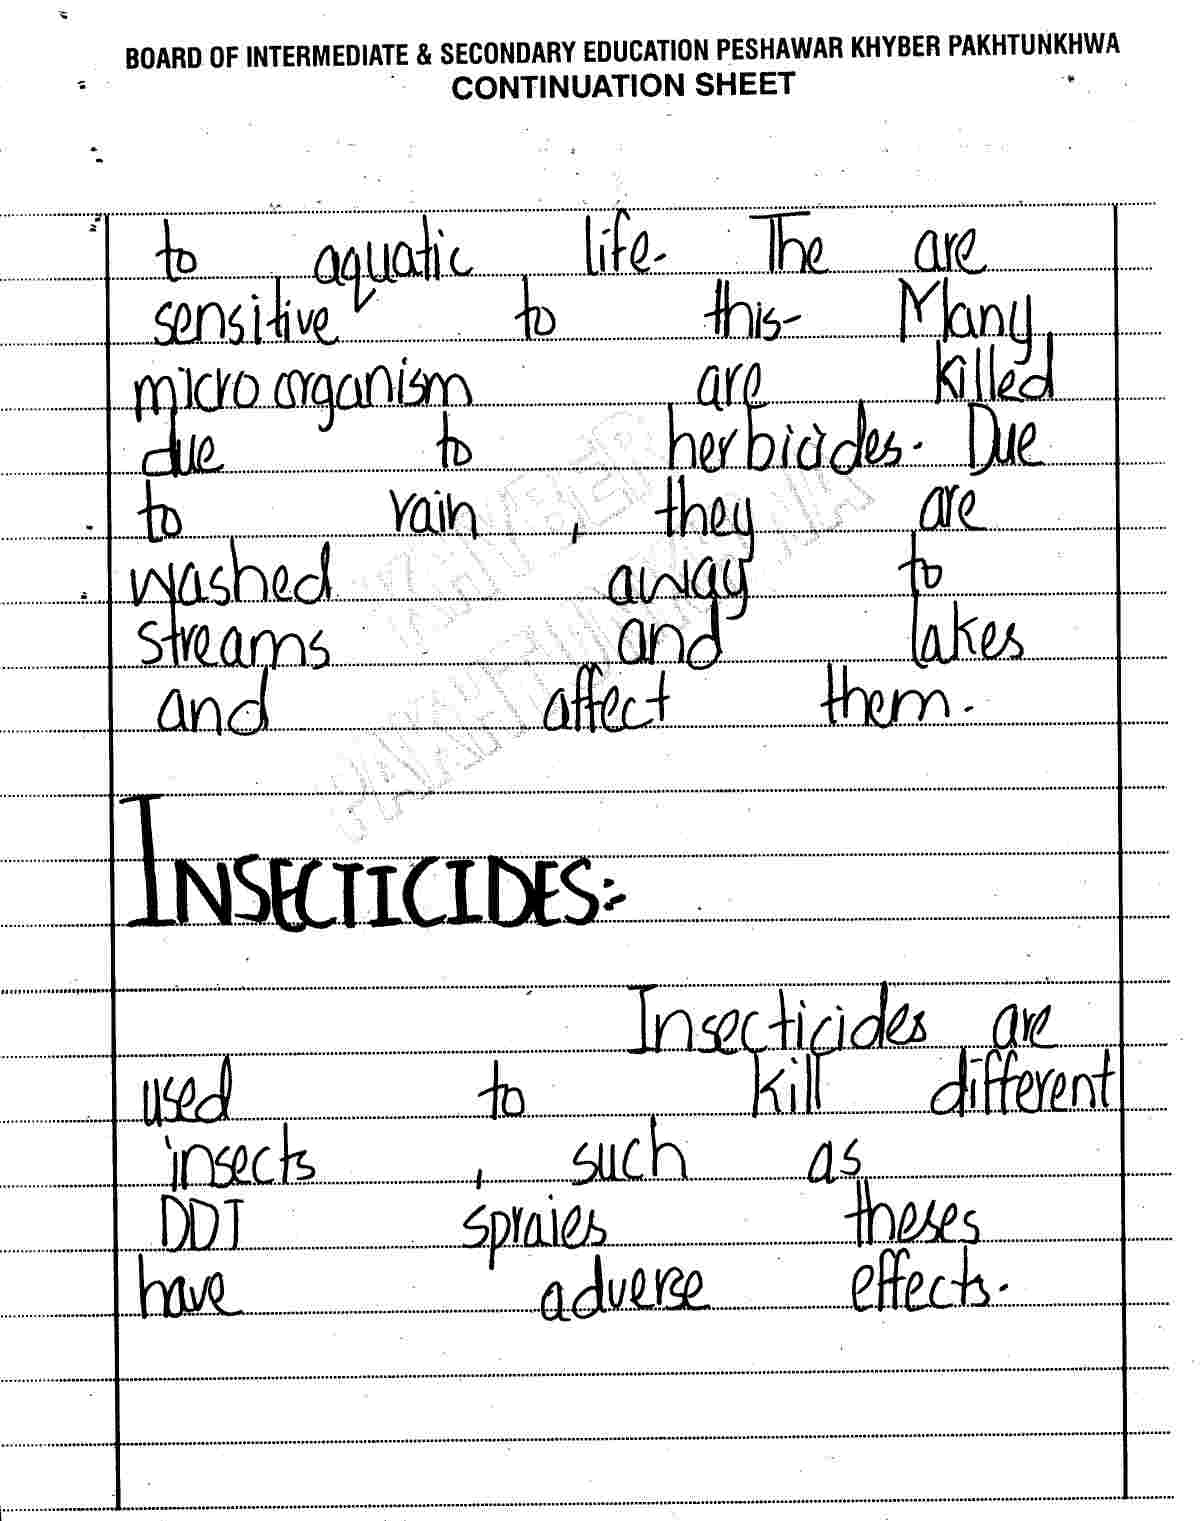 BOARD OF INTERMEDIATE & SECONDARY EDUCATION PESHAWAR KHYBER PAKHTUNKHWA
CONTINUATION SHEET
to aquatic life. The are
sensitive to this. Many
micro organism are killed
due to herbicides. Due
to rain, they are
washed away to
streams and lakes
and affect them.
KHYBER
PAKHTUNKHWA
INSECTICIDES:-
Insecticides are
used to kill different
insects, such as
DDT spraies theses
have adverse effects.